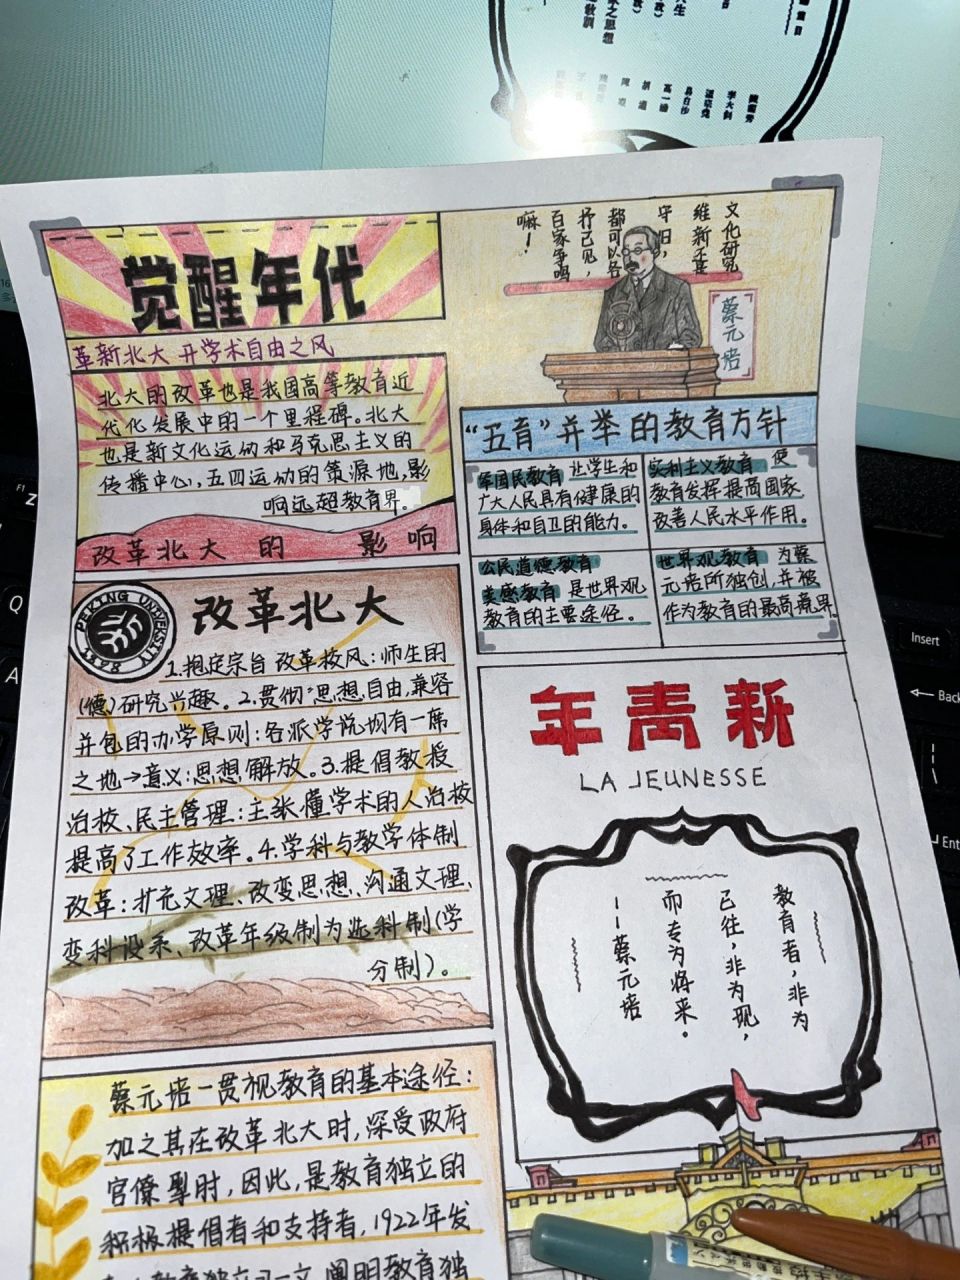 觉醒年代
革新北大 开学术自由之风
北大的改革也是我国高等教育近
代化发展中的一个里程碑。北大
也是新文化运动和马克思主义的
传播中心，五四运动的策源地，影
响远超教育界。
改革北大 的 影响
PEKING UNIVERSITY
1898
改革北大
1.抱定宗旨 改革校风：师生的
(德)研究兴趣。2.贯彻“思想自由，兼容
并包的办学原则：各派学说均有一席
之地→意义：思想解放。3.提倡教授
治校、民主管理：主张懂学术的人治校
提高了工作效率。4.学科与教学体制
改革：扩充文理、改变思想、沟通文理、
变科设系、改革年级制为选科制(学
分制)。
蔡元培一贯视教育的基本途径：
加之其在改革北大时，深受政府
官僚掣时，因此，是教育独立的
积极提倡者和支持者，1922年发
教育独立
一文，阐明教育独
文化研究
维新不要
守旧，
都可以各
抒己见，
百家争鸣
嘛！
蔡元培
“五育”并举的教育方针
军国民教育 让学生和
广大人民具有健康的
身体和自卫的能力。
实利主义教育 使
教育发挥提高国家
改善人民水平作用。
公民道德教育
美感教育 是世界观
教育的主要途径。
世界观教育 为蔡
元培所独创，并被
作为教育的最高境界
年青新
LA JEUNESSE
教育者，非为
已往，非为现，
而专为将来。
——蔡元培
Insert
Back
Ent
F1
Z
Q
A